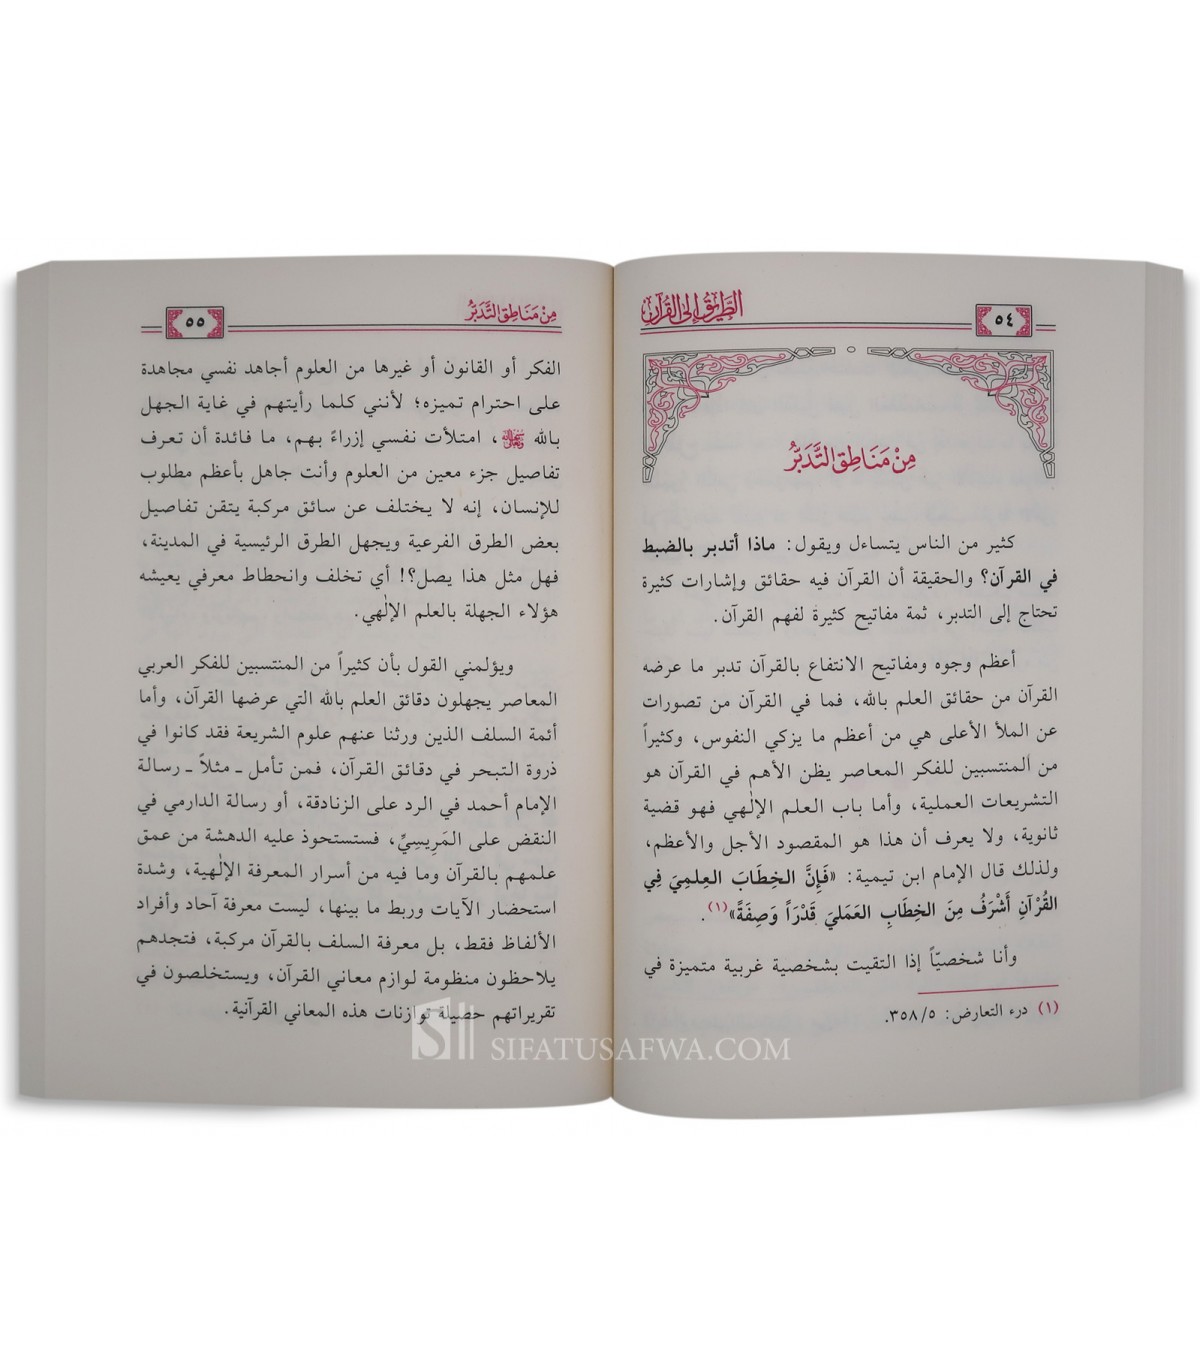 ٥٤
الطريق إلى القرآن
مِنْ مَنَاطِقِ التَّدَبُّرِ
كثير من الناس يتساءل ويقول: ماذا أتدبر بالضبط
في القرآن؟ والحقيقة أن القرآن فيه حقائق وإشارات كثيرة
تحتاج إلى التدبر، ثمة مفاتيح كثيرة لفهم القرآن.
أعظم وجوه ومفاتيح الانتفاع بالقرآن تدبر ما عرضه
القرآن من حقائق العلم بالله، فما في القرآن من تصورات
عن الملأ الأعلى هي من أعظم ما يزكي النفوس، وكثيراً
من المنتسبين للفكر المعاصر يظن الأهم في القرآن هو
التشريعات العملية، وأما باب العلم الإلٰهي فهو قضية
ثانوية، ولا يعرف أن هذا هو المقصود الأجل والأعظم،
ولذلك قال الإمام ابن تيمية: «فَإِنَّ الخِطَابَ العِلمِيَ فِي
القُرْآنِ أَشْرَفُ مِنَ الخِطَابِ العَمَليَ قَدْرَاً وَصِفَةً»(١).
وأنا شخصيّاً إذا التقيت بشخصية غربية متميزة في
(١) درء التعارض: ٣٥٨/٥.
مِنْ مَنَاطِقِ التَّدَبُّرِ
٥٥
الفكر أو القانون أو غيرها من العلوم أجاهد نفسي مجاهدة
على احترام تميزه؛ لأنني كلما رأيتهم في غاية الجهل
بالله ، امتلأت نفسي إزراءً بهم، ما فائدة أن تعرف
تفاصيل جزء معين من العلوم وأنت جاهل بأعظم مطلوب
للإنسان، إنه لا يختلف عن سائق مركبة يتقن تفاصيل
بعض الطرق الفرعية ويجهل الطرق الرئيسية في المدينة،
فهل مثل هذا يصل؟! أي تخلف وانحطاط معرفي يعيشه
هؤلاء الجهلة بالعلم الإلٰهي.
ويؤلمني القول بأن كثيراً من المنتسبين للفكر العربي
المعاصر يجهلون دقائق العلم بالله التي عرضها القرآن، وأما
أئمة السلف الذين ورثنا عنهم علوم الشريعة فقد كانوا في
ذروة التبحر في دقائق القرآن، فمن تأمل ـ مثلاً ـ رسالة
الإمام أحمد في الرد على الزنادقة، أو رسالة الدارمي في
النقض على المَرِيسِيِّ، فستستحوذ عليه الدهشة من عمق
علمهم بالقرآن وما فيه من أسرار المعرفة الإلٰهية، وشدة
استحضار الآيات وربط ما بينها، ليست معرفة آحاد وأفراد
الألفاظ فقط، بل معرفة السلف بالقرآن مركبة، فتجدهم
يلاحظون منظومة لوازم معاني القرآن، ويستخلصون في
تقريراتهم حصيلة توازنات هذه المعاني القرآنية.
SIFATUSAFWA.COM